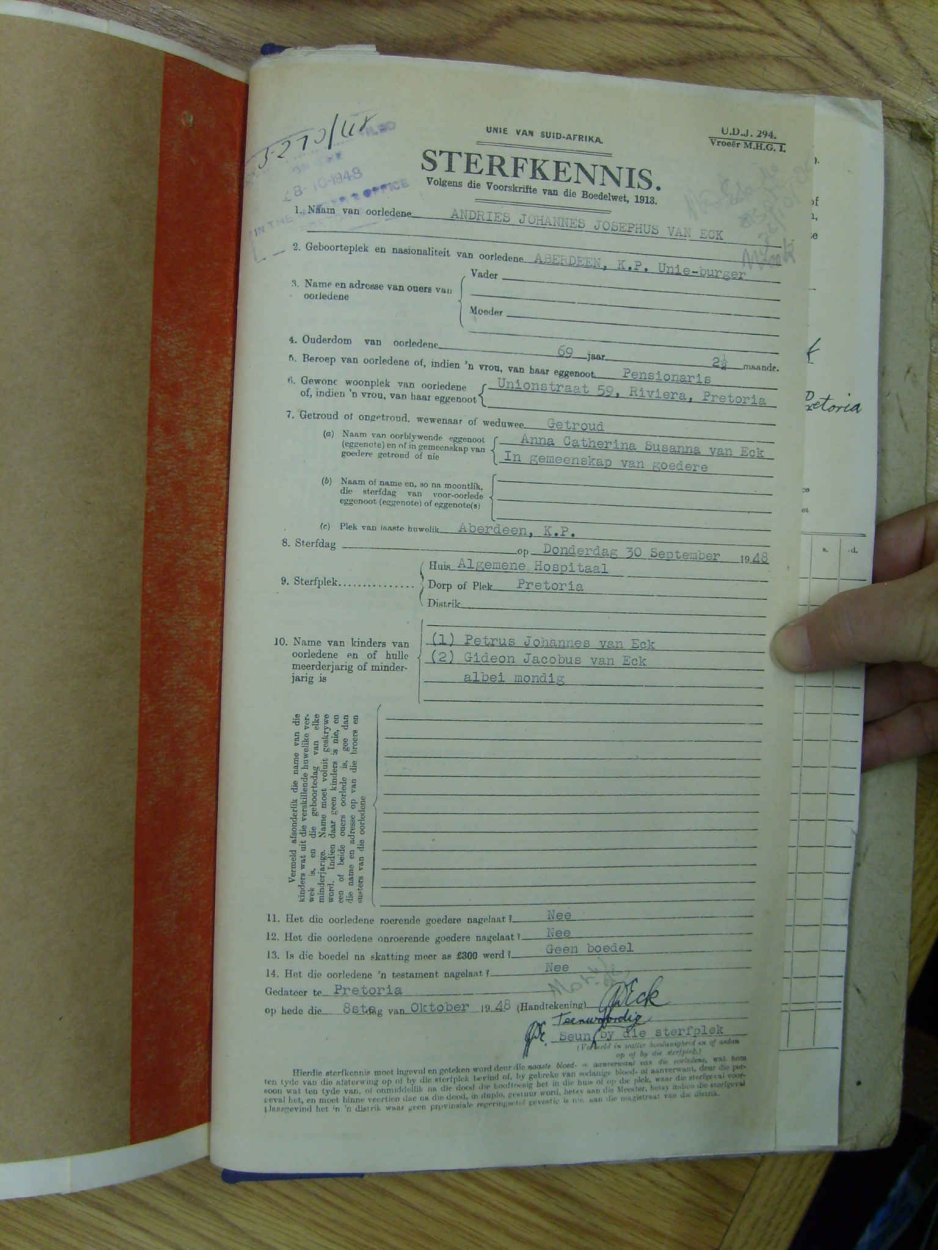 5270/48
28-10-1948
IN THE MASTER'S OFFICE
UNIE VAN SUID-AFRIKA.
U.D.J. 294.
Vroeër M.H.G. I.
STERFKENNIS.
Volgens die Voorskrifte van die Boedelwet, 1913.
1. Naam van oorledene ANDRIES JOHANNES JOSEPHUS VAN ECK
2. Geboorteplek en nasionaliteit van oorledene ABERDEEN, K.P. Unie-burger
3. Name en adresse van ouers van oorledene
Vader
Moeder
4. Ouderdom van oorledene 69 jaar 2½ maande.
5. Beroep van oorledene of, indien 'n vrou, van haar eggenoot Pensionaris
6. Gewone woonplek van oorledene Unionstraat 59, Riviera, Pretoria
of, indien 'n vrou, van haar eggenoot
7. Getroud of ongetroud, wewenaar of weduwee Getroud
(a) Naam van oorblywende eggenoot Anna Catherina Susanna van Eck
(eggenote) en of in gemeenskap van
goedere getroud of nie In gemeenskap van goedere
(b) Naam of name en, so na moontlik,
die sterfdag van voor-oorlede
eggenoot (eggenote) of eggenote(s)
(c) Plek van laaste huwelik Aberdeen, K.P.
8. Sterfdag op Donderdag 30 September 1948
9. Sterfplek
Huis Algemene Hospitaal
Dorp of Plek Pretoria
Distrik
10. Name van kinders van (1) Petrus Johannes van Eck
oorledene en of hulle (2) Gideon Jacobus van Eck
meerderjarig of minder- albei mondig
jarig is
Vermeld afsonderlik die name van die
kinders wat uit die verskillende huwelike ver-
wek is, en die geboortedag van elke
minderjarige. Name moet voluit geskrywe
word. Indien daar geen kinders is nie, en
een of beide ouers oorlede is, gee dan
die name en adresse op van die broers en
susters van die oorledene
11. Het die oorledene roerende goedere nagelaat? Nee
12. Het die oorledene onroerende goedere nagelaat? Nee
13. Is die boedel na skatting meer as £300 werd? Geen boedel
14. Het die oorledene 'n testament nagelaat? Nee
Gedateer te Pretoria
op hede die 8ste dag van Oktober 1948 (Handtekening)
Teenwoordig
Seun by die sterfplek
Hierdie sterfkennis moet ingevul en geteken word deur die naaste bloed- o. aanverwant van die oorledene, wat hom
ten tyde van die afsterwing op of by die sterfplek bevind of, by gebreke van sodanige bloed- of aanverwant, deur die per-
soon wat ten tyde van, of onmiddellik na die dood die hooftoesig het in die huis of op die plek, waar die sterfgeval voor-
geval het, en moet binne veertien dae na die dood, in duplo, gestuur word, hetsy aan die Meester, hetsy indien die sterfgeval
plaasgevind het in 'n distrik waar geen provinsiale regeringsetel gevestig is nie, aan die magistraat van die distrik.
Pretoria